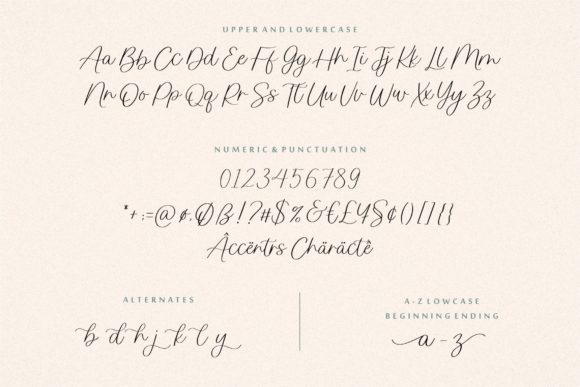 UPPER AND LOWERCASE
Aa Bb Cc Dd Ee Ff Gg Hh Ii Jj Kk Ll Mm
Nn Oo Pp Qq Rr Ss Tt Uu Vv Ww Xx Yy Zz
NUMERIC & PUNCTUATION
0123456789
!?#$%&€£¥§¢()[]{}
Âccëntrs Chäräctê
ALTERNATES
b d h j k l y
A-Z LOWCASE
BEGINNING ENDING
a-z